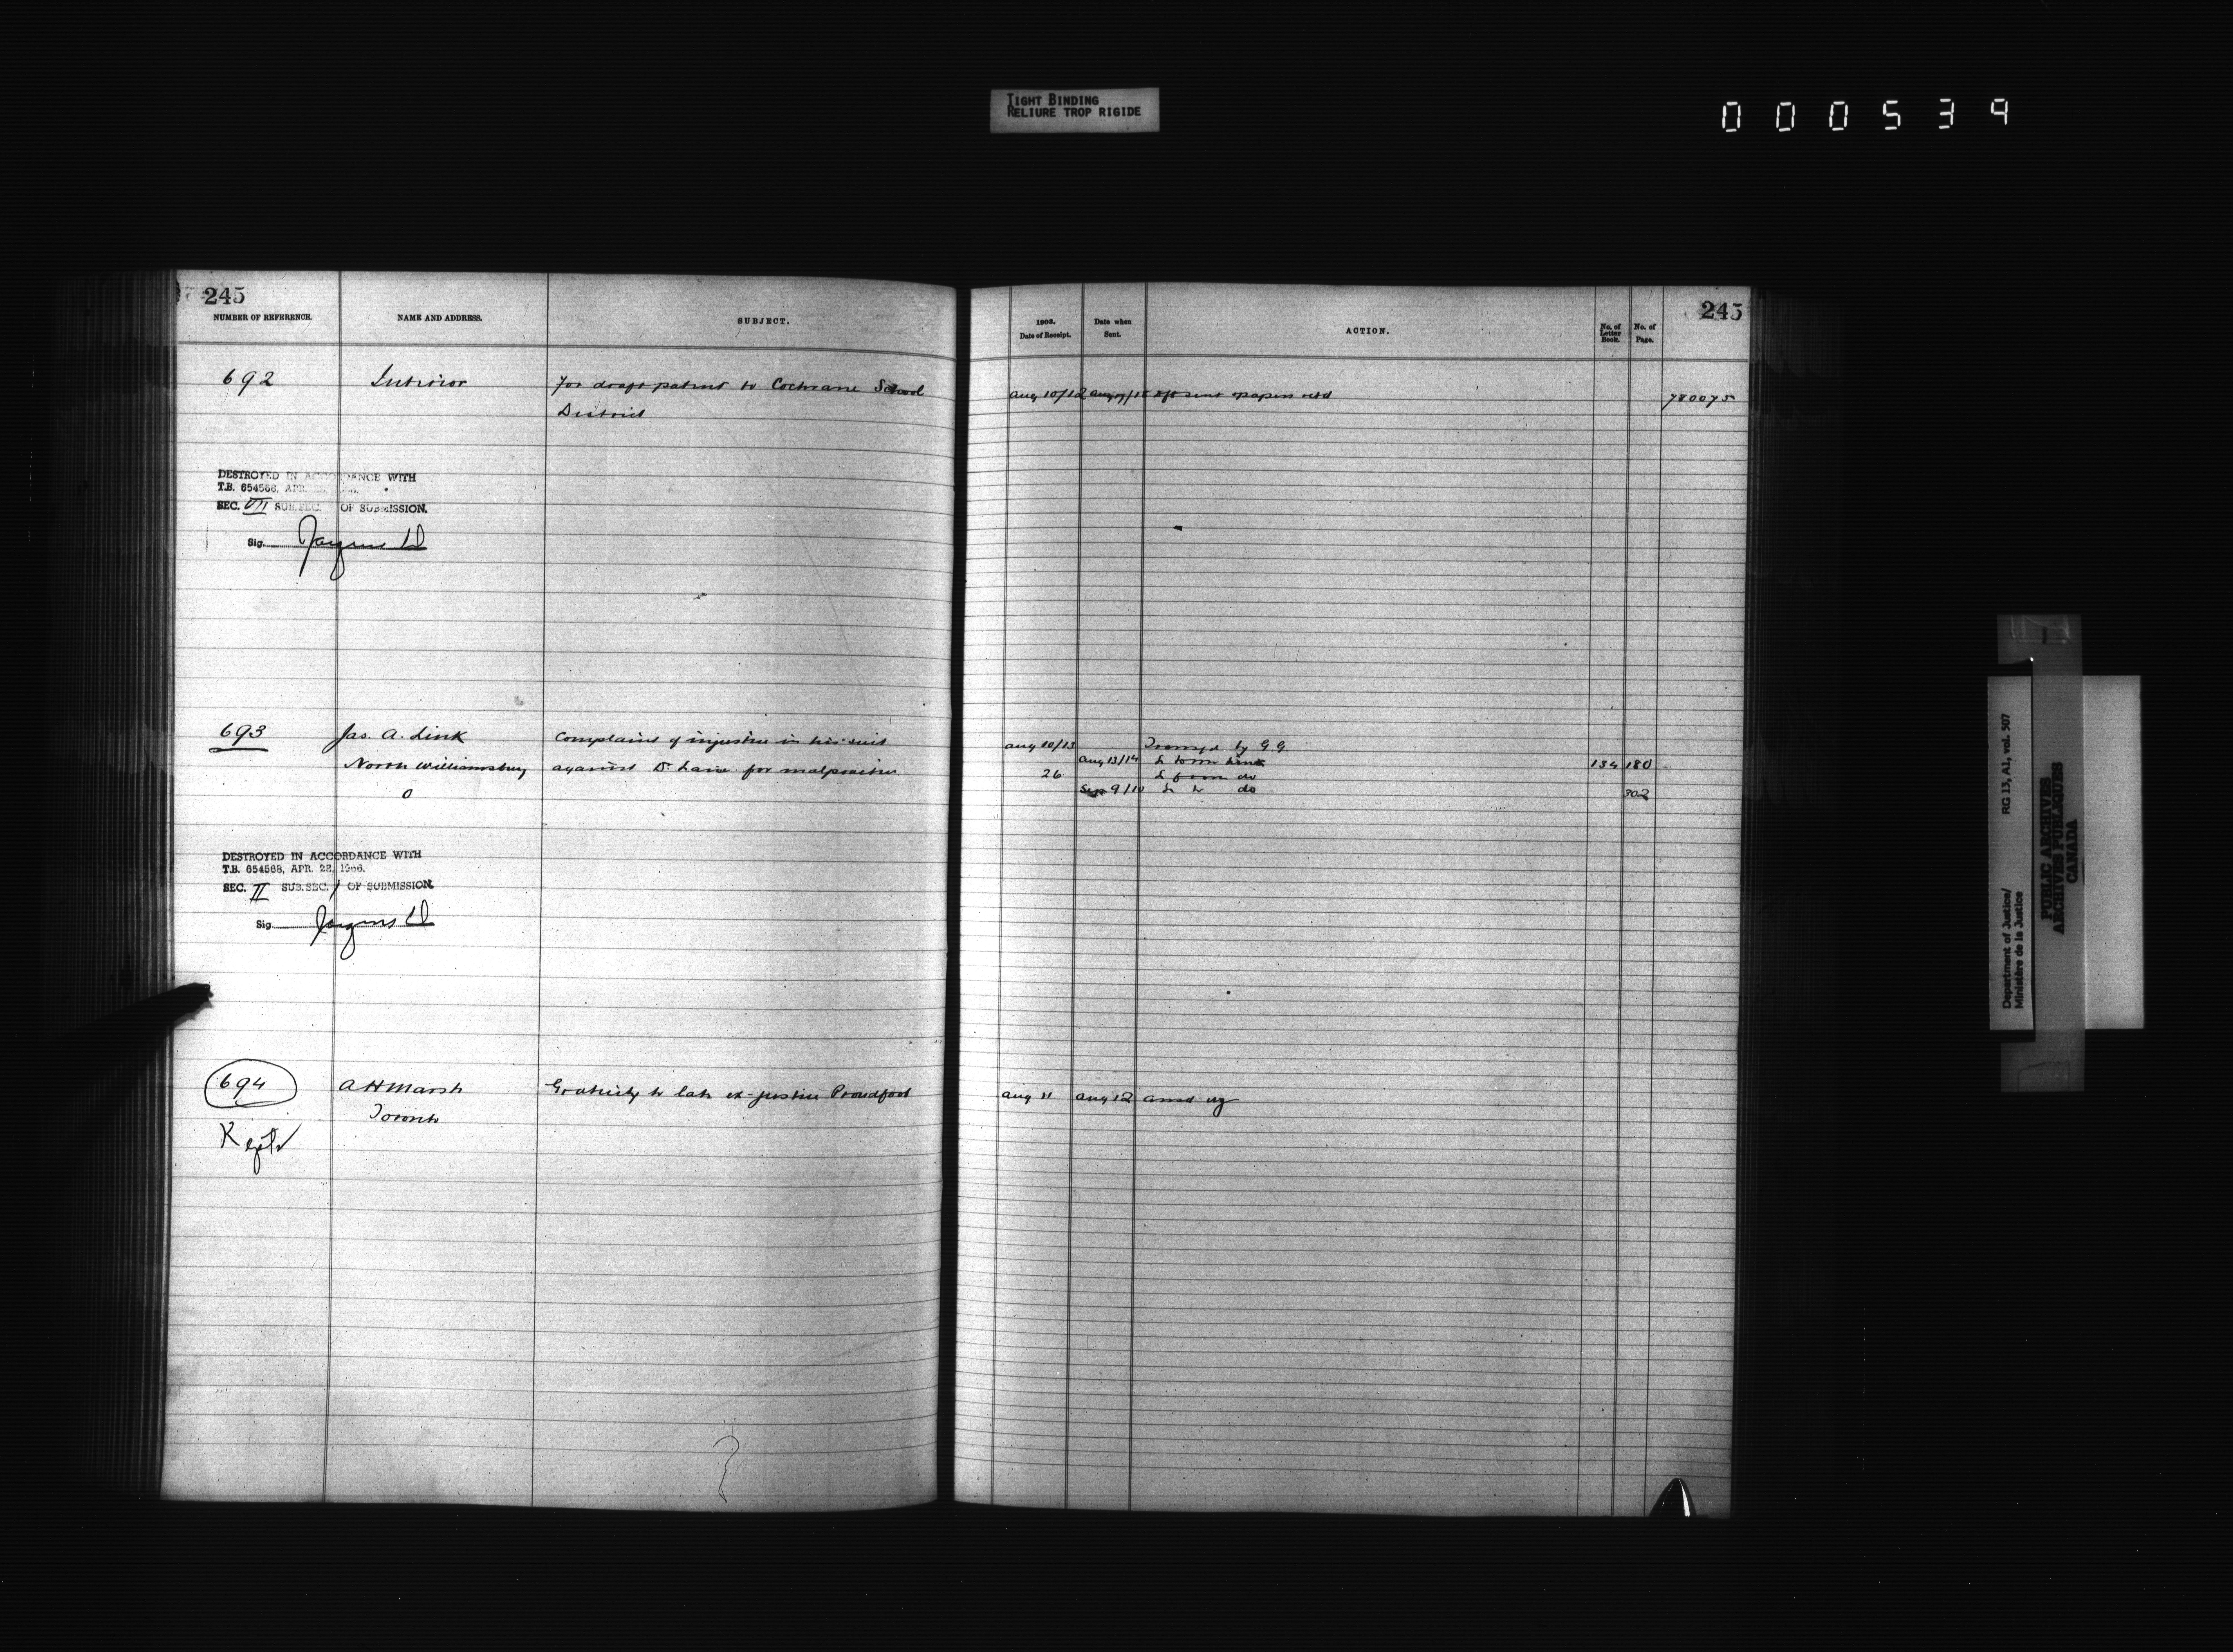 TIGHT BINDING
RELIURE TROP RIGIDE
000539
245
NUMBER OF REFERENCE.
NAME AND ADDRESS.
SUBJECT.
692
Interior
For draft patent to Cochrane School
District
DESTROYED IN ACCORDANCE WITH
T.B. 654568, APR.
SEC. VII SUB.SEC. OF SUBMISSION.
Sig.
693
Jas. A. Link
Complaint of injustice in his suit
North Williamsburg
against Dr. Lane for malpractice
O
DESTROYED IN ACCORDANCE WITH
T.B. 654568, APR. 22, 1966.
SEC. II SUB.SEC. 1 OF SUBMISSION.
Sig.
694
A H Marsh
Gratuity to late ex-justice Proudfoot
Toronto
245
1903.
Date of Receipt.
Date when
Sent.
ACTION.
No. of
Letter
Book.
No. of
Page.
Aug 10/12 Aug 17/18 dft sent & papers retd
780075
Aug 10/13 by G G
Aug 13/14 L to Link 134 180
26 L from do
Sep 9/10 L to do 302
Aug 11 Aug 12 ansd
Department of Justice/
Ministère de la Justice
RG 13, A1, vol. 907
PUBLIC ARCHIVES
ARCHIVES PUBLIQUES
CANADA